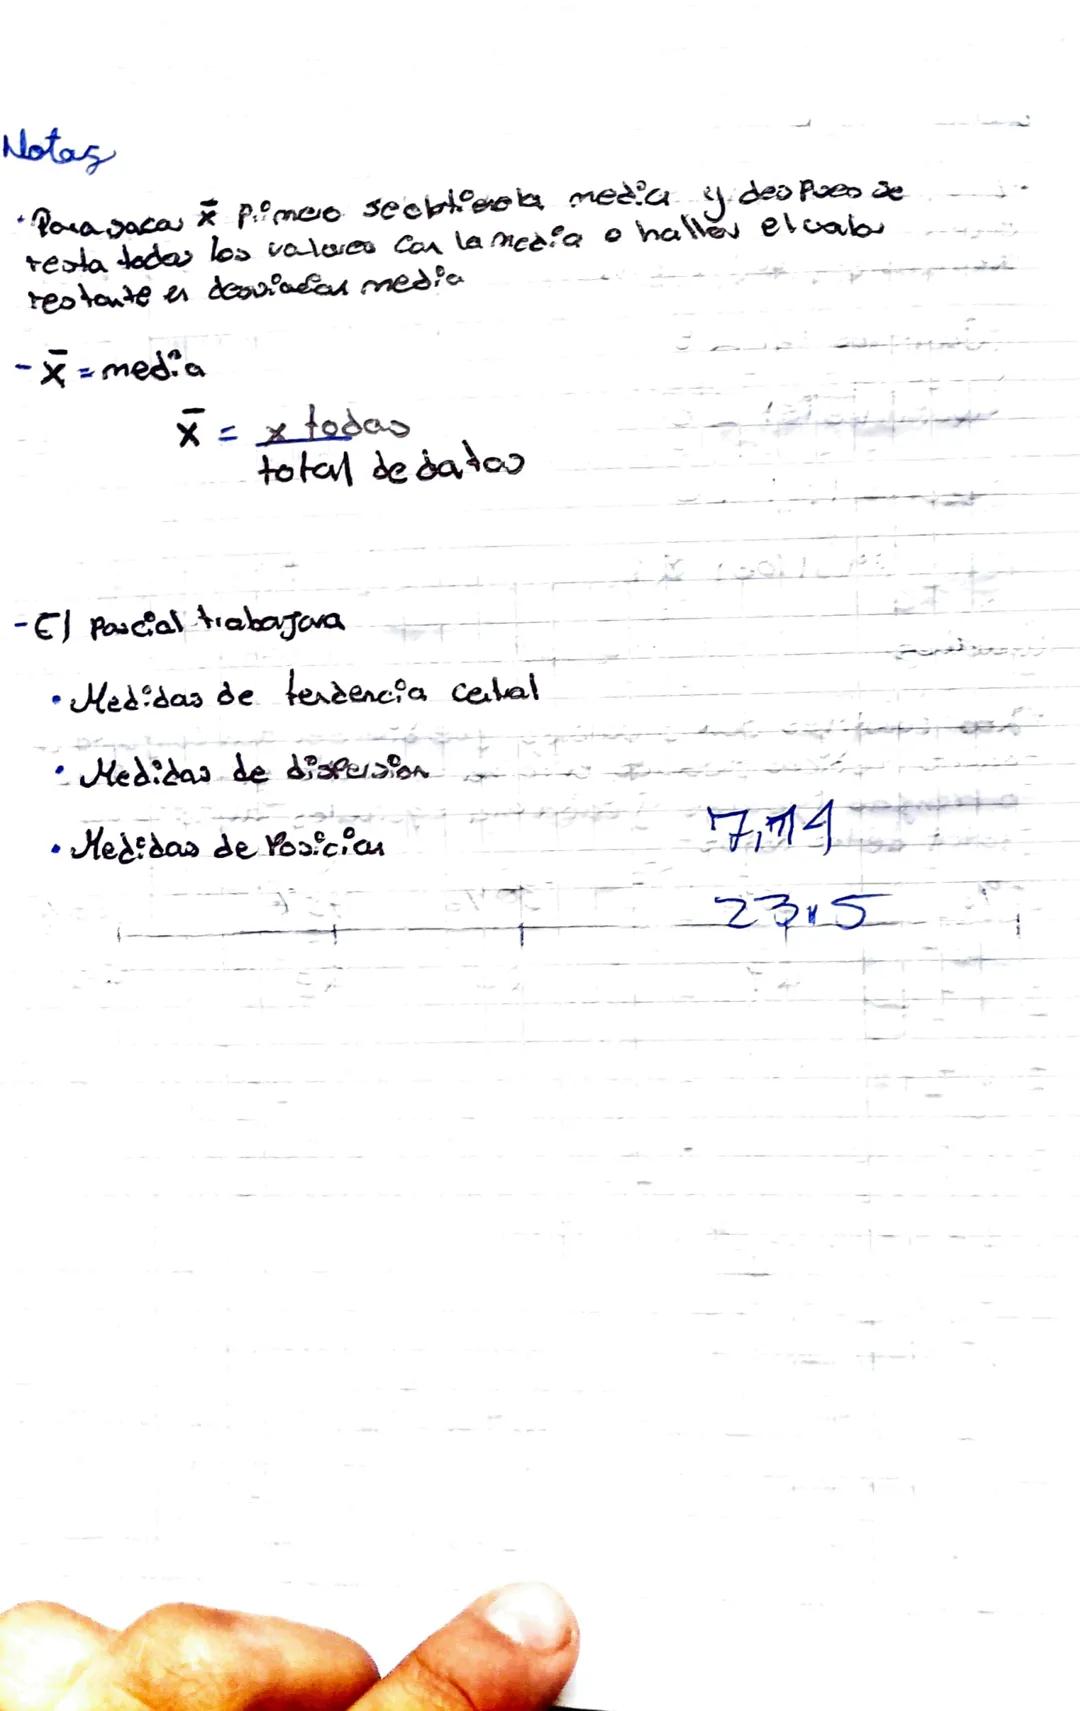 Notas
· Para sacar x̄ primero se obtiene la media y despues se
resta todos los valores con la media o hallar el valor
restante es desviacion media
- x̄ = media
x̄ = x todas
total de datos
- El Parcial trabajara
• Medidas de tendencia central
• Medidas de dispersion
• Medidas de Posicion
23,5